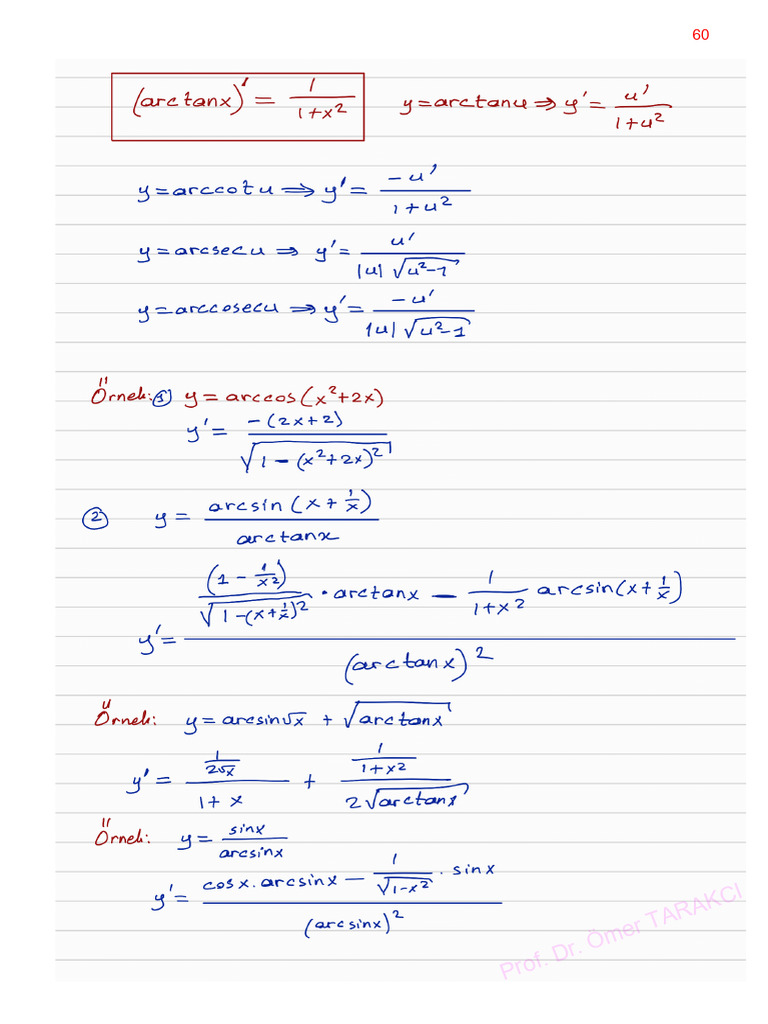 60
(arctanx)' = 1/(1+x²)    y=arctanu ⇒ y' = u'/(1+u²)
y=arccotu ⇒ y' = -u'/(1+u²)
y=arcsecu ⇒ y' = u'/(|u|√(u²-1))
y=arccosecu ⇒ y' = -u'/(|u|√(u²-1))
Örnek: ① y = arccos(x²+2x)
y' = -(2x+2)/√(1-(x²+2x)²)
② y = arcsin(x+1/x)/arctanx
y' = ((1-1/x²)/√(1-(x+1/x)²) · arctanx - 1/(1+x²) arcsin(x+1/x))/(arctanx)²
Örnek: y=arcsin√x + √(arctanx)
y' = (1/(2√x))/(1+x) + (1/(1+x²))/(2√(arctanx))
Örnek: y = sinx/arcsinx
y' = (cosx.arcsinx - 1/√(1-x²) . sinx)/(arcsinx)²
Prof. Dr. Ömer TARAKCI